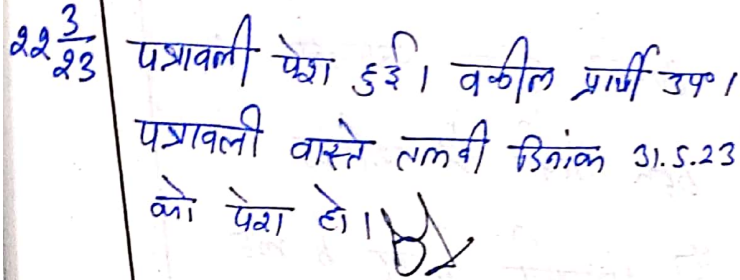 22 3/23 पत्रावली पेश हुई। वकील प्रार्थी उप०।
पत्रावली वास्ते तलबी दिनांक 31.5.23
को पेश हो।